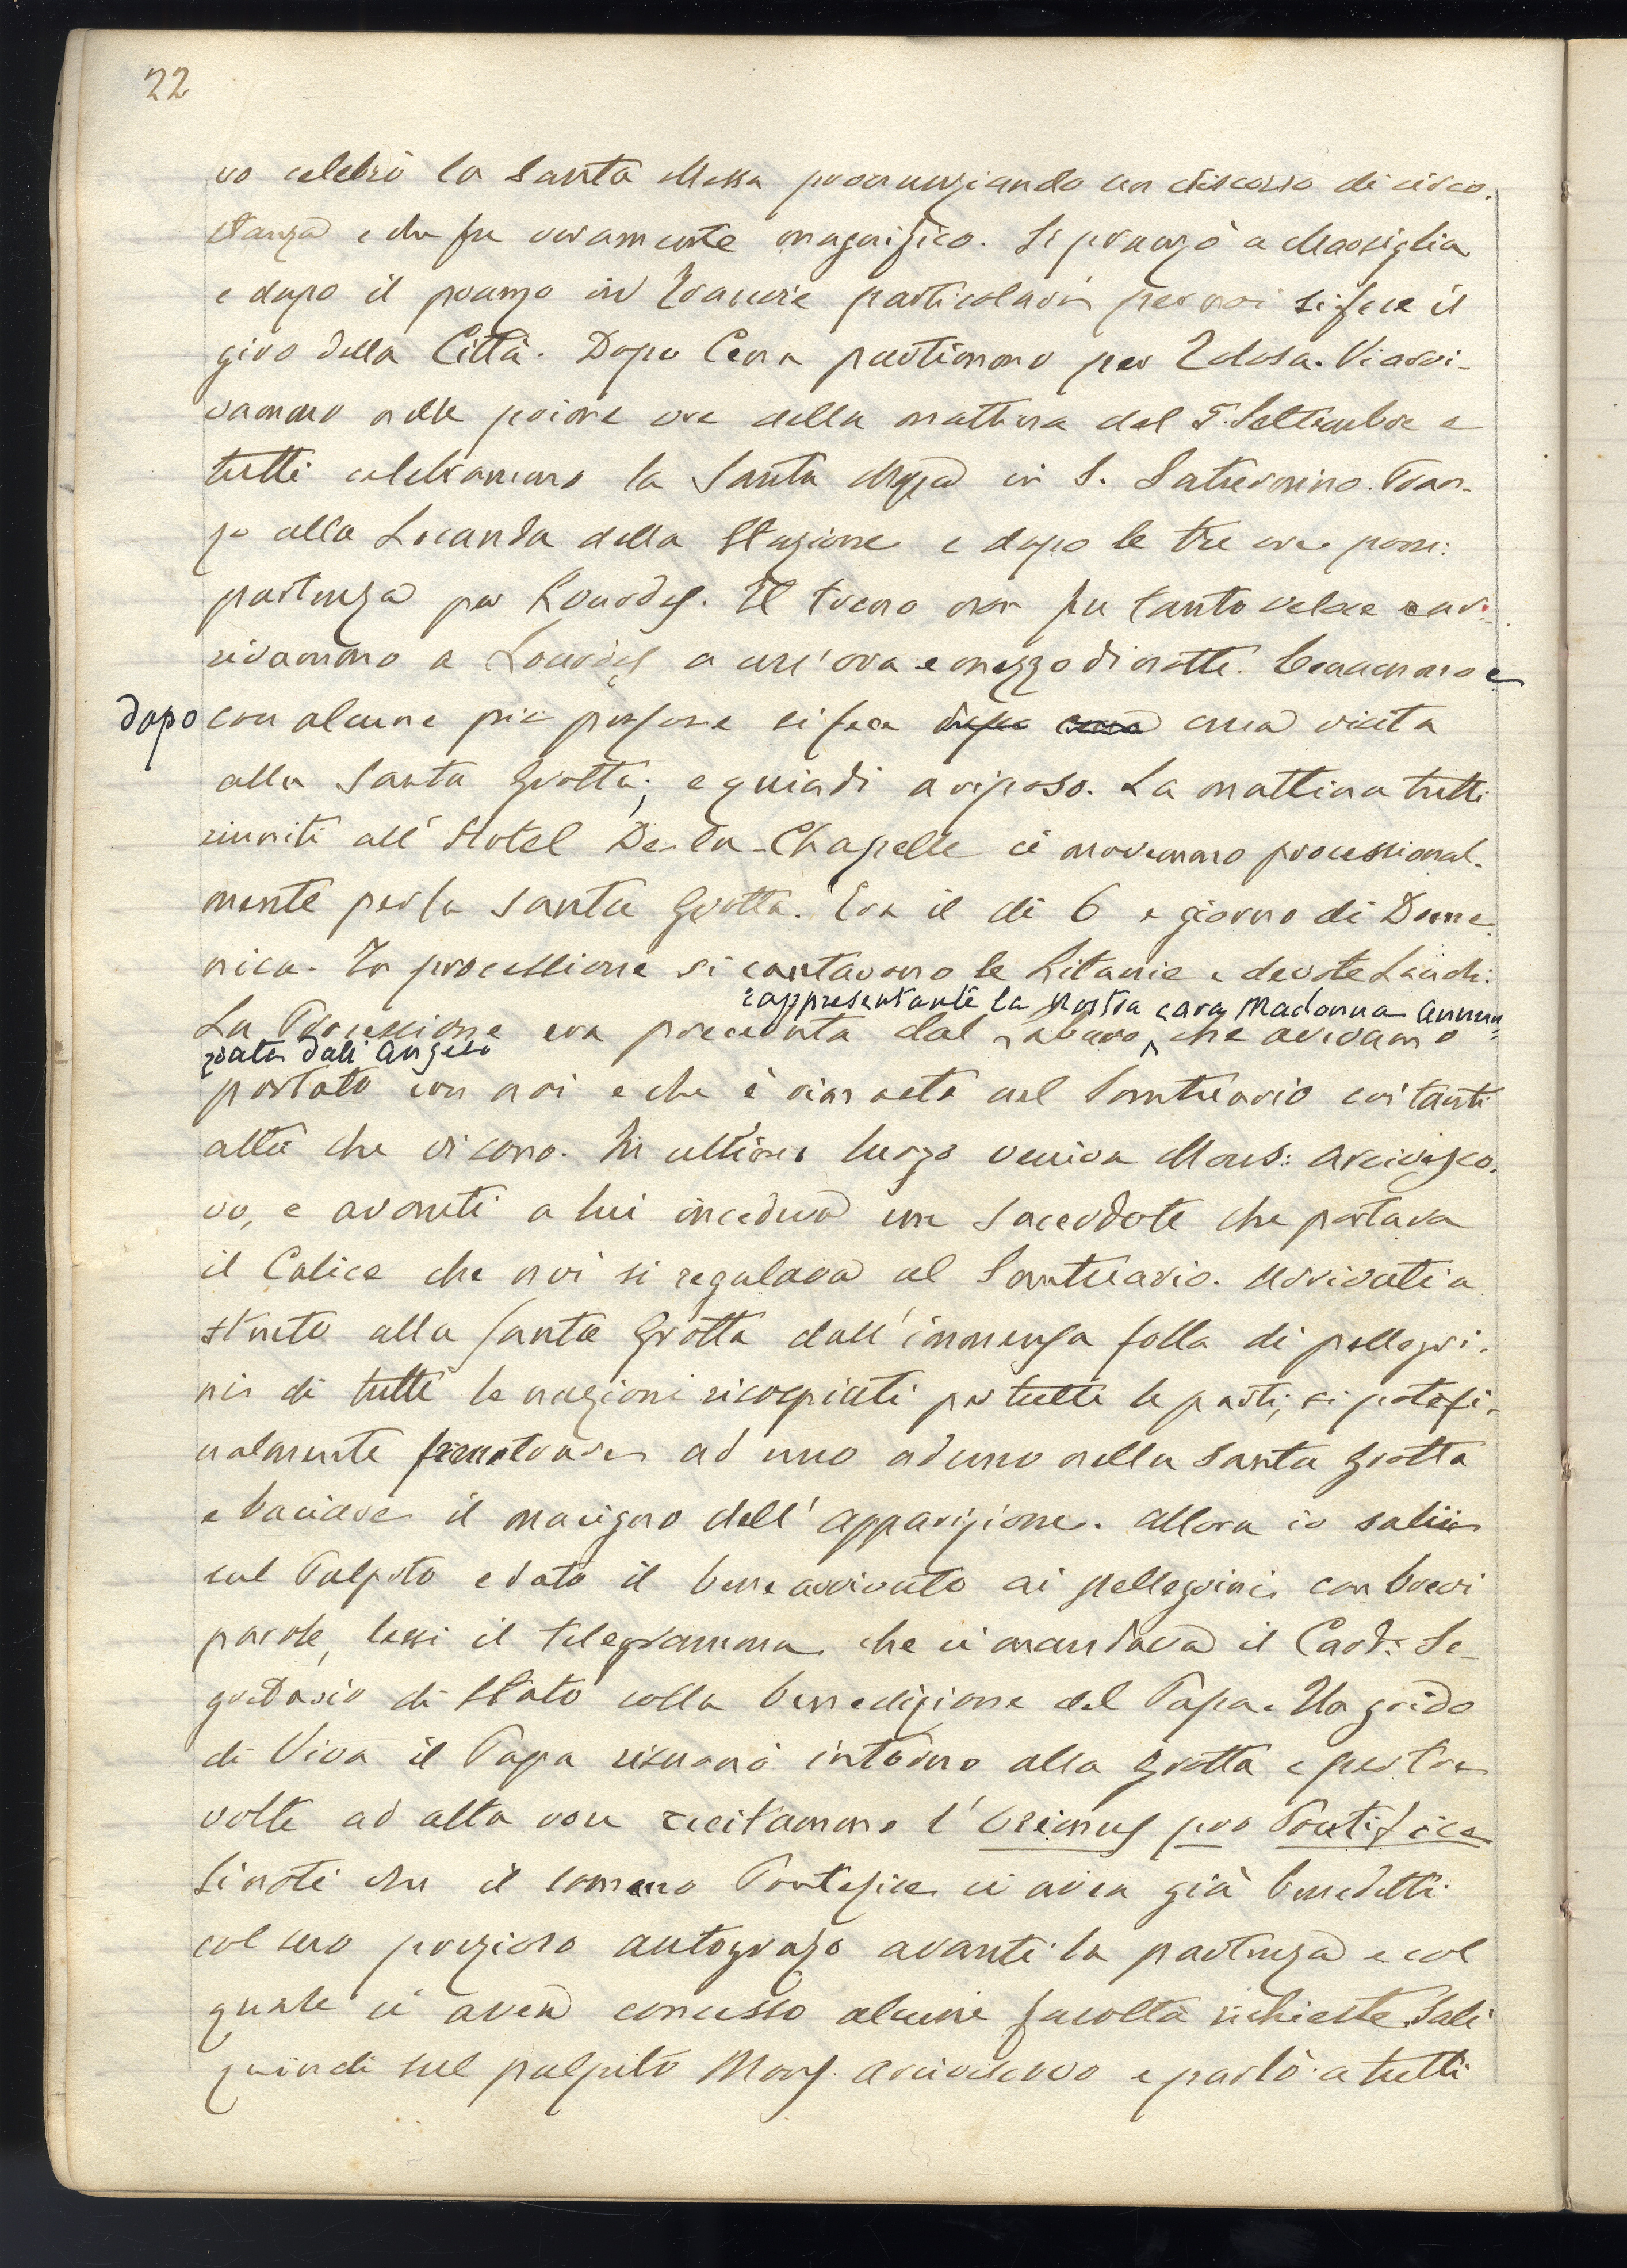 22
vo celebrò la Santa Messa pronunziando un discorso di circo-
stanza e che fu veramente magnifico. Si pranzò a Marsiglia
e dopo il pranzo in Tranvie particolari per noi si fece il
giro della Città. Dopo Cena partimmo per Tolosa. Vi arri-
vammo nelle prime ore della mattina del 5. Settembre e
tutti celebrammo la Santa Messa in S. Saturnino. Pran-
zo alla Locanda della Stazione e dopo le tre ore pom:
partenza per Lourdes. Il treno non fu tanto veloce e ar-
rivammo a Lourdes a un'ora e mezzo di notte. Cenammo e
dopo con alcune più persone si fece dopo cena una visita
alla Santa Grotta; e quindi a riposo. La mattina tutti
riuniti all'Hotel De-la-Chapelle ci movemmo processional-
mente per la Santa Grotta. Era il dì 6 e giorno di Dome-
nica. In processione si cantavano le Litanie e devote Laudi:
rappresentante la Nostra cara Madonna Annun-
La Processione era preceduta dal labaro, che avevamo
ziata dall'Angelo
portato con noi e che è rimasto nel Santuario coi tanti
altri che vi sono. In ultimo luogo veniva Mons: Arcivesco-
vo, e avanti a lui incedeva un Sacerdote che portava
il Calice che noi si regalava al Santuario. Arrivati a
stento alla Santa Grotta dall'immensa folla di pellegri-
ni di tutte le nazioni ricospinti per tutte le parti, si potè fi-
nalmente penetrare ad uno ad uno nella Santa Grotta
e baciare il macigno dell'apparizione. Allora io salii
sul Pulpito e dato il ben arrivato ai pellegrini con brevi
parole, lessi il telegramma che ci mandava il Card: Se-
gretario di Stato colla benedizione del Papa. Un grido
di Viva il Papa risuonò intorno alla Grotta e per tre
volte ad alta voce recitammo l'Oremus pro Pontifice
Si noti che il sommo Pontefice ci avea già benedetti
col suo prezioso autografo avanti la partenza e col
quale ci avea concesso alcune facoltà richieste. Salì
quindi sul pulpito Mons. Arcivescovo e parlò a tutti